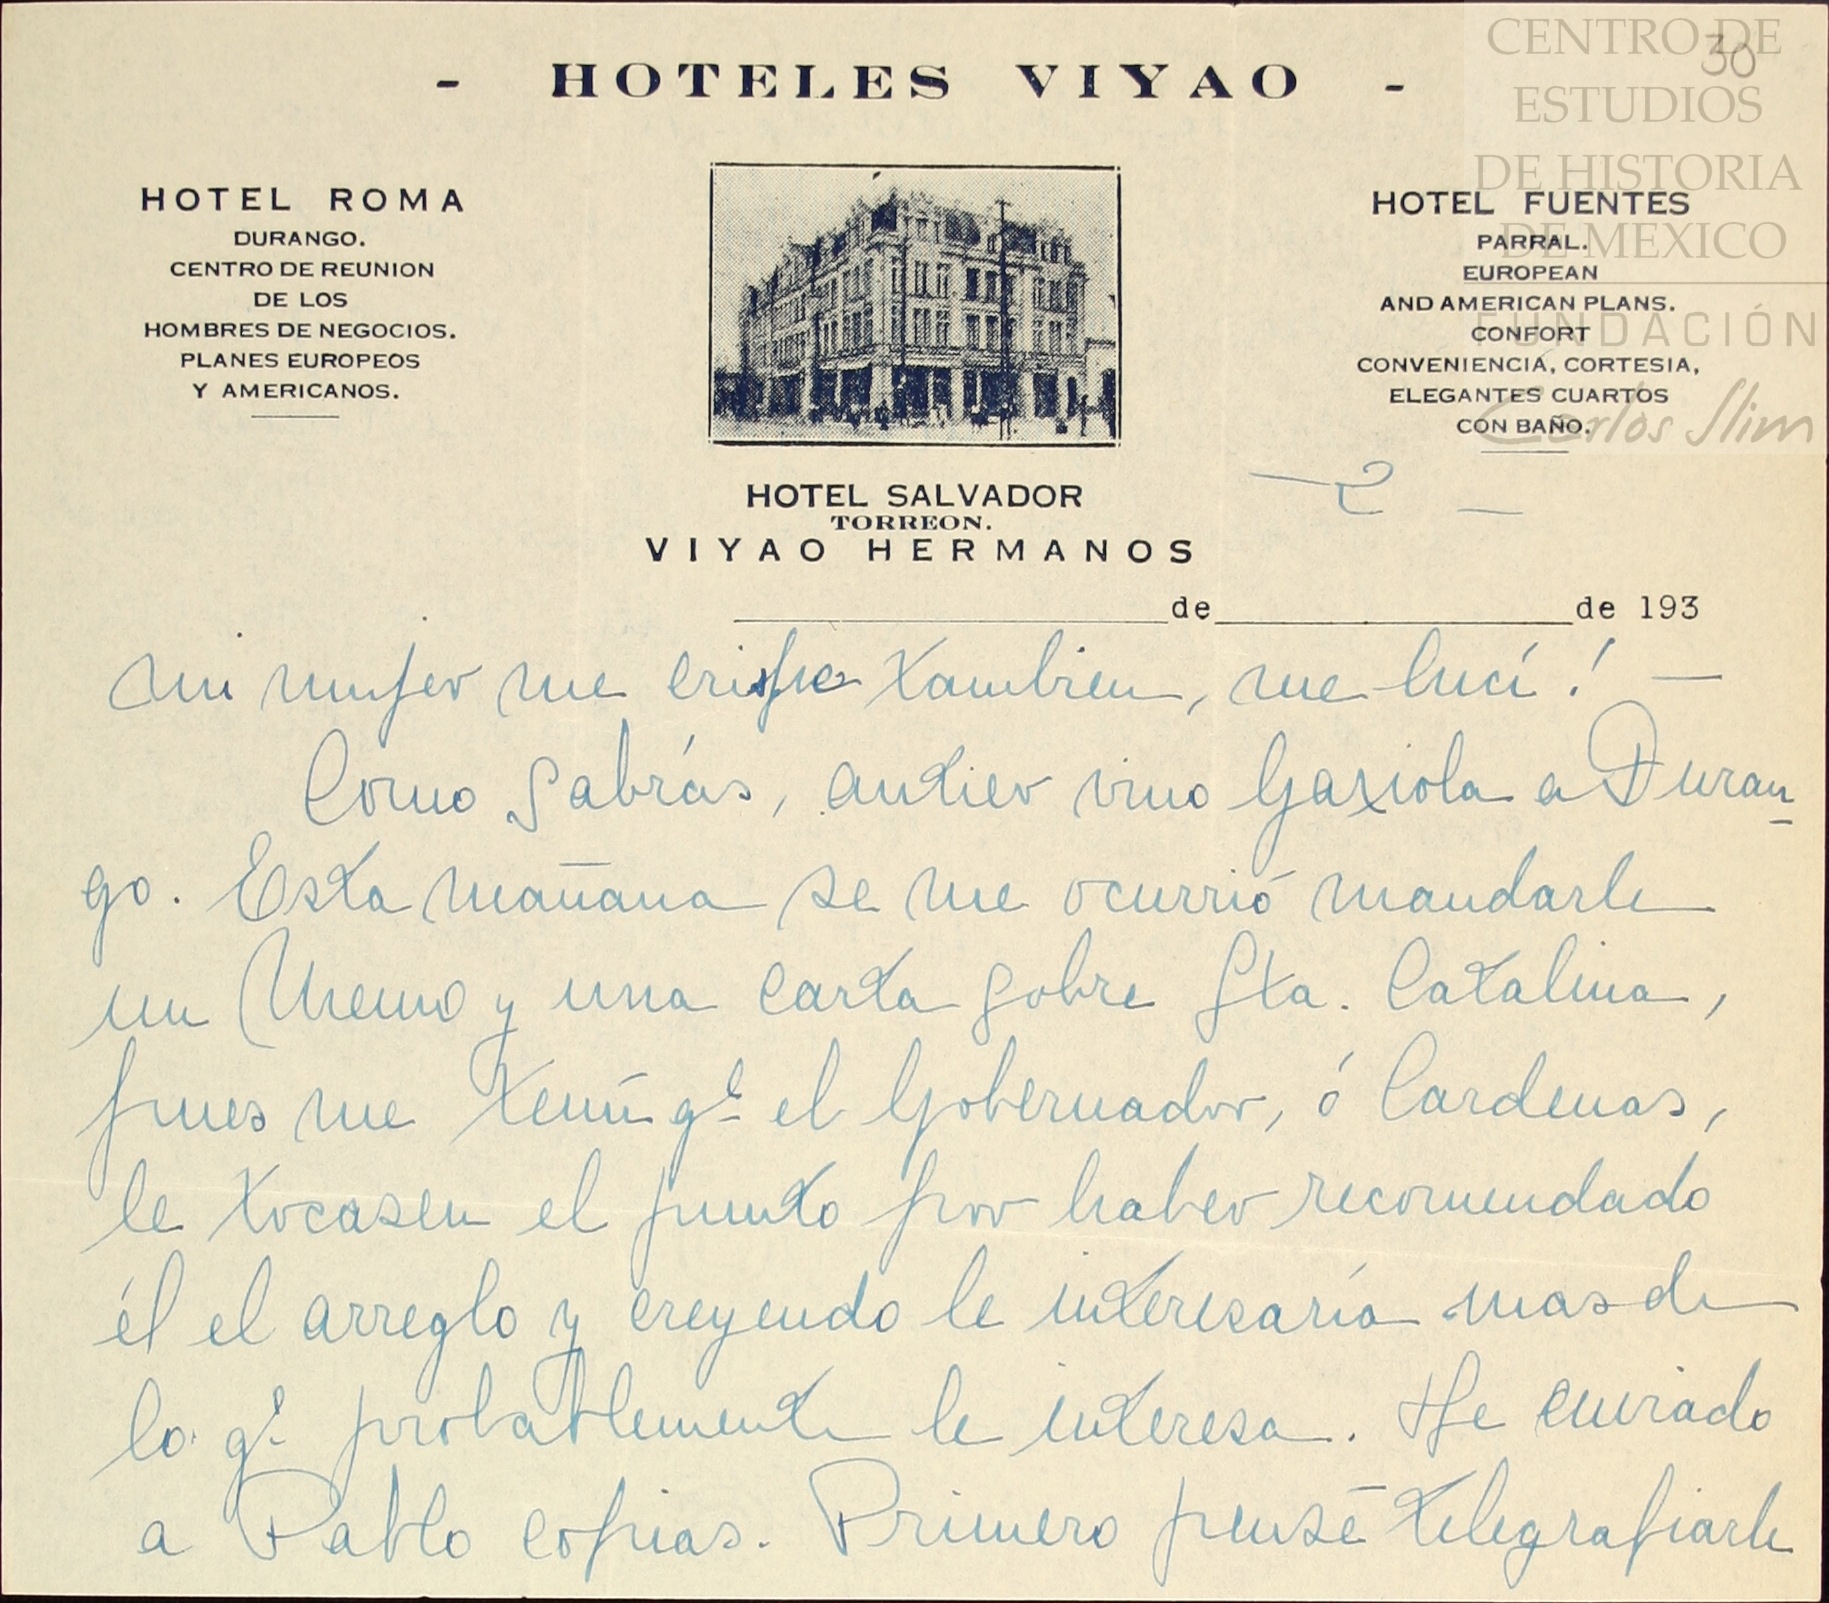 30
- HOTELES VIYAO -
HOTEL ROMA
DURANGO.
CENTRO DE REUNION
DE LOS
HOMBRES DE NEGOCIOS.
PLANES EUROPEOS
Y AMERICANOS.
HOTEL FUENTES
PARRAL.
EUROPEAN
AND AMERICAN PLANS.
CONFORT
CONVENIENCIA, CORTESIA,
ELEGANTES CUARTOS
CON BAÑO.
HOTEL SALVADOR
TORREON.
VIYAO HERMANOS
— 2 —
de de 193
mi mujer me crispe tambien, me lucí! —
Como Sabrás, antier vino Gaxiola a Duran
go. Esta mañana se me ocurrió mandarle
un Memo y una carta sobre Sta. Catalina,
pues me temí qe el Gobernador, ó Cardenas,
le tocasen el punto por haber recomendado
él el arreglo y creyendo le interesaría mas de
lo qe probablemente le interesa. He enviado
a Pablo copias. Primero pensé telegrafiarle
CENTRO DE
ESTUDIOS
DE HISTORIA
DE MEXICO
FUNDACIÓN
Carlos Slim